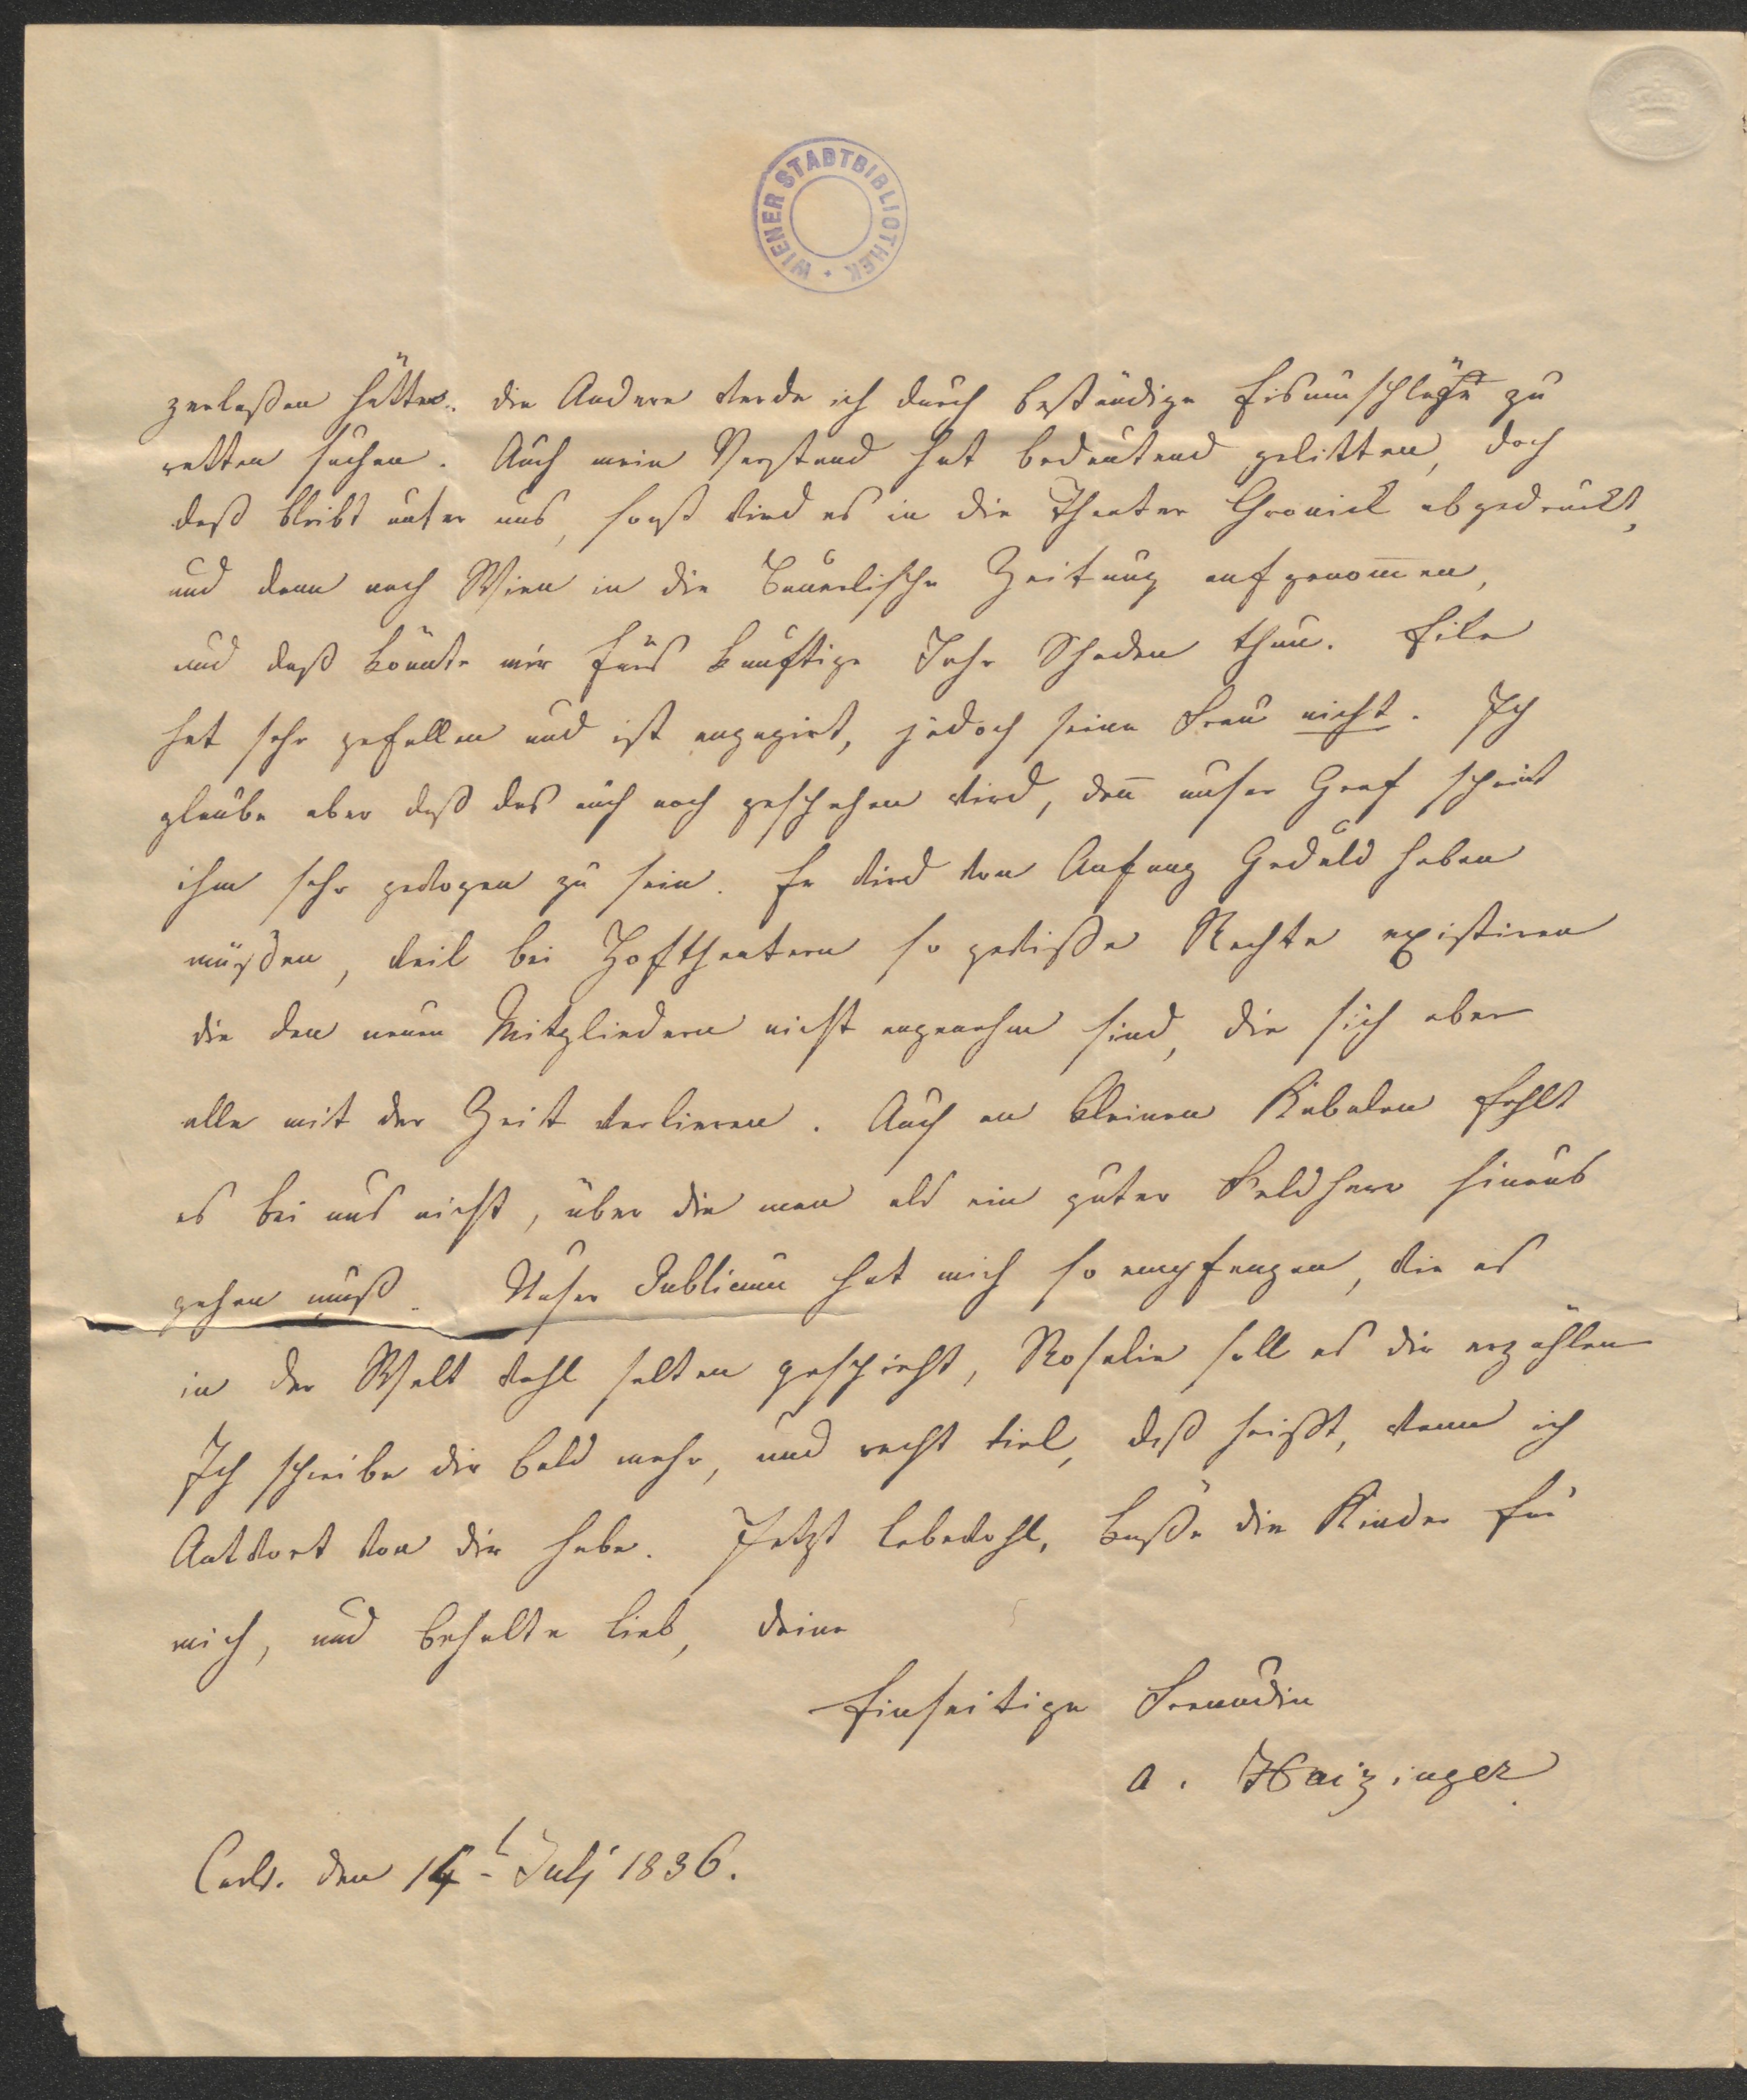 WIENER STADTBIBLIOTHEK
zerlaßen hätte. die Andere werde ich durch beständige Eisumschläge zu
retten suchen. Auch mein Verstand hat bedeutend gelitten, doch
daß bleibt unter uns, sonst wird es in die Theater Chronick abgedruckt,
und dann nach Wien in die Bäuerlische Zeitung aufgenom̅en,
und daß könnte mir fürs künftige Jahr Schaden thun. Eile
hat sehr gefallen und ist engagirt, jedoch seine Frau nicht. Ich
glaube aber daß das auch noch geschehen wird, den̅ unser Graf scheint
ihm sehr gewogen zu sein. Er wird von Anfang Geduld haben
müßen, weil bei Hoftheatern so gewiße Rechte existiren
die den neuen Mitgliedern nicht angenehm sind, die sich aber
alle mit der Zeit verlieren. Auch an kleinen Kabalen fehlt
es bei uns nicht, über die man als ein guter Feldherr hinaus
gehen muß. Unser Publicum hat mich so empfangen, wie es
in der Welt wohl selten geschieht, Rosalie soll es dir erzählen
Ich schreibe dir bald mehr, und recht viel, daß heißt, wenn ich
Antwort von dir habe. Jetzt lebewohl, küße die Kinder für
mich, und behalte lieb, deine
Einseitige Freundin
A. Haizinger
Carls. den 14t Julj 1836.